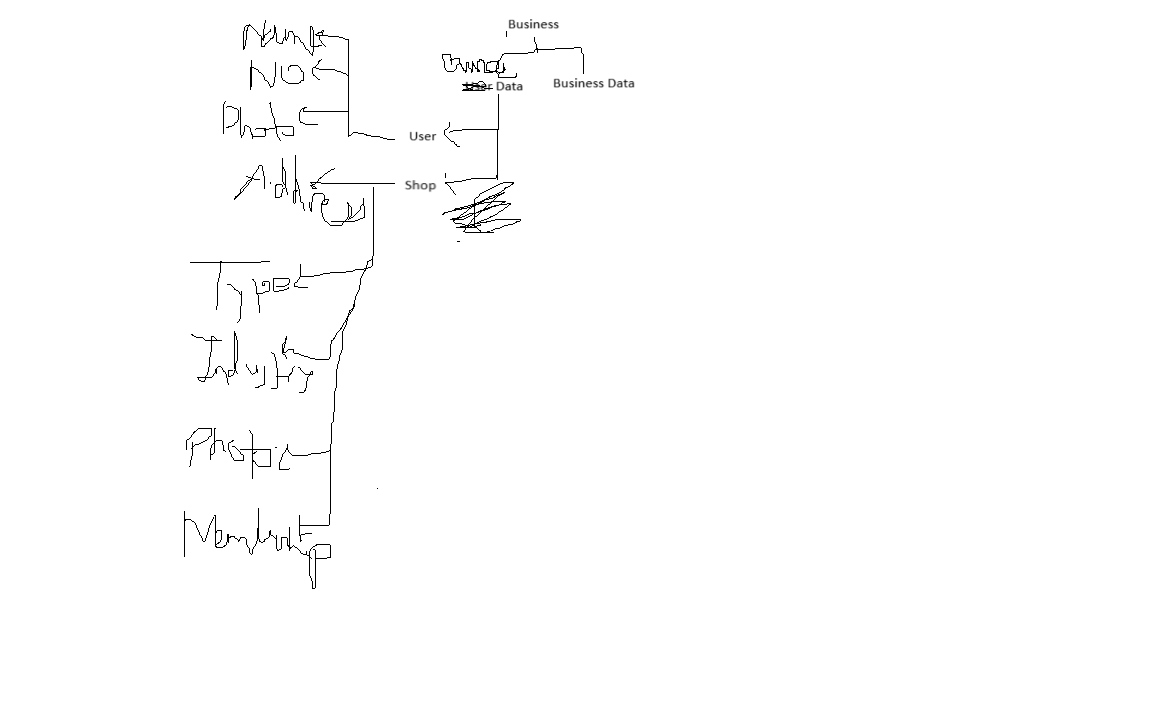 Business
Owner
Data
Business Data
Name
NO
Photo
User
Shop
Address
Type
Industry
Photo
Membership